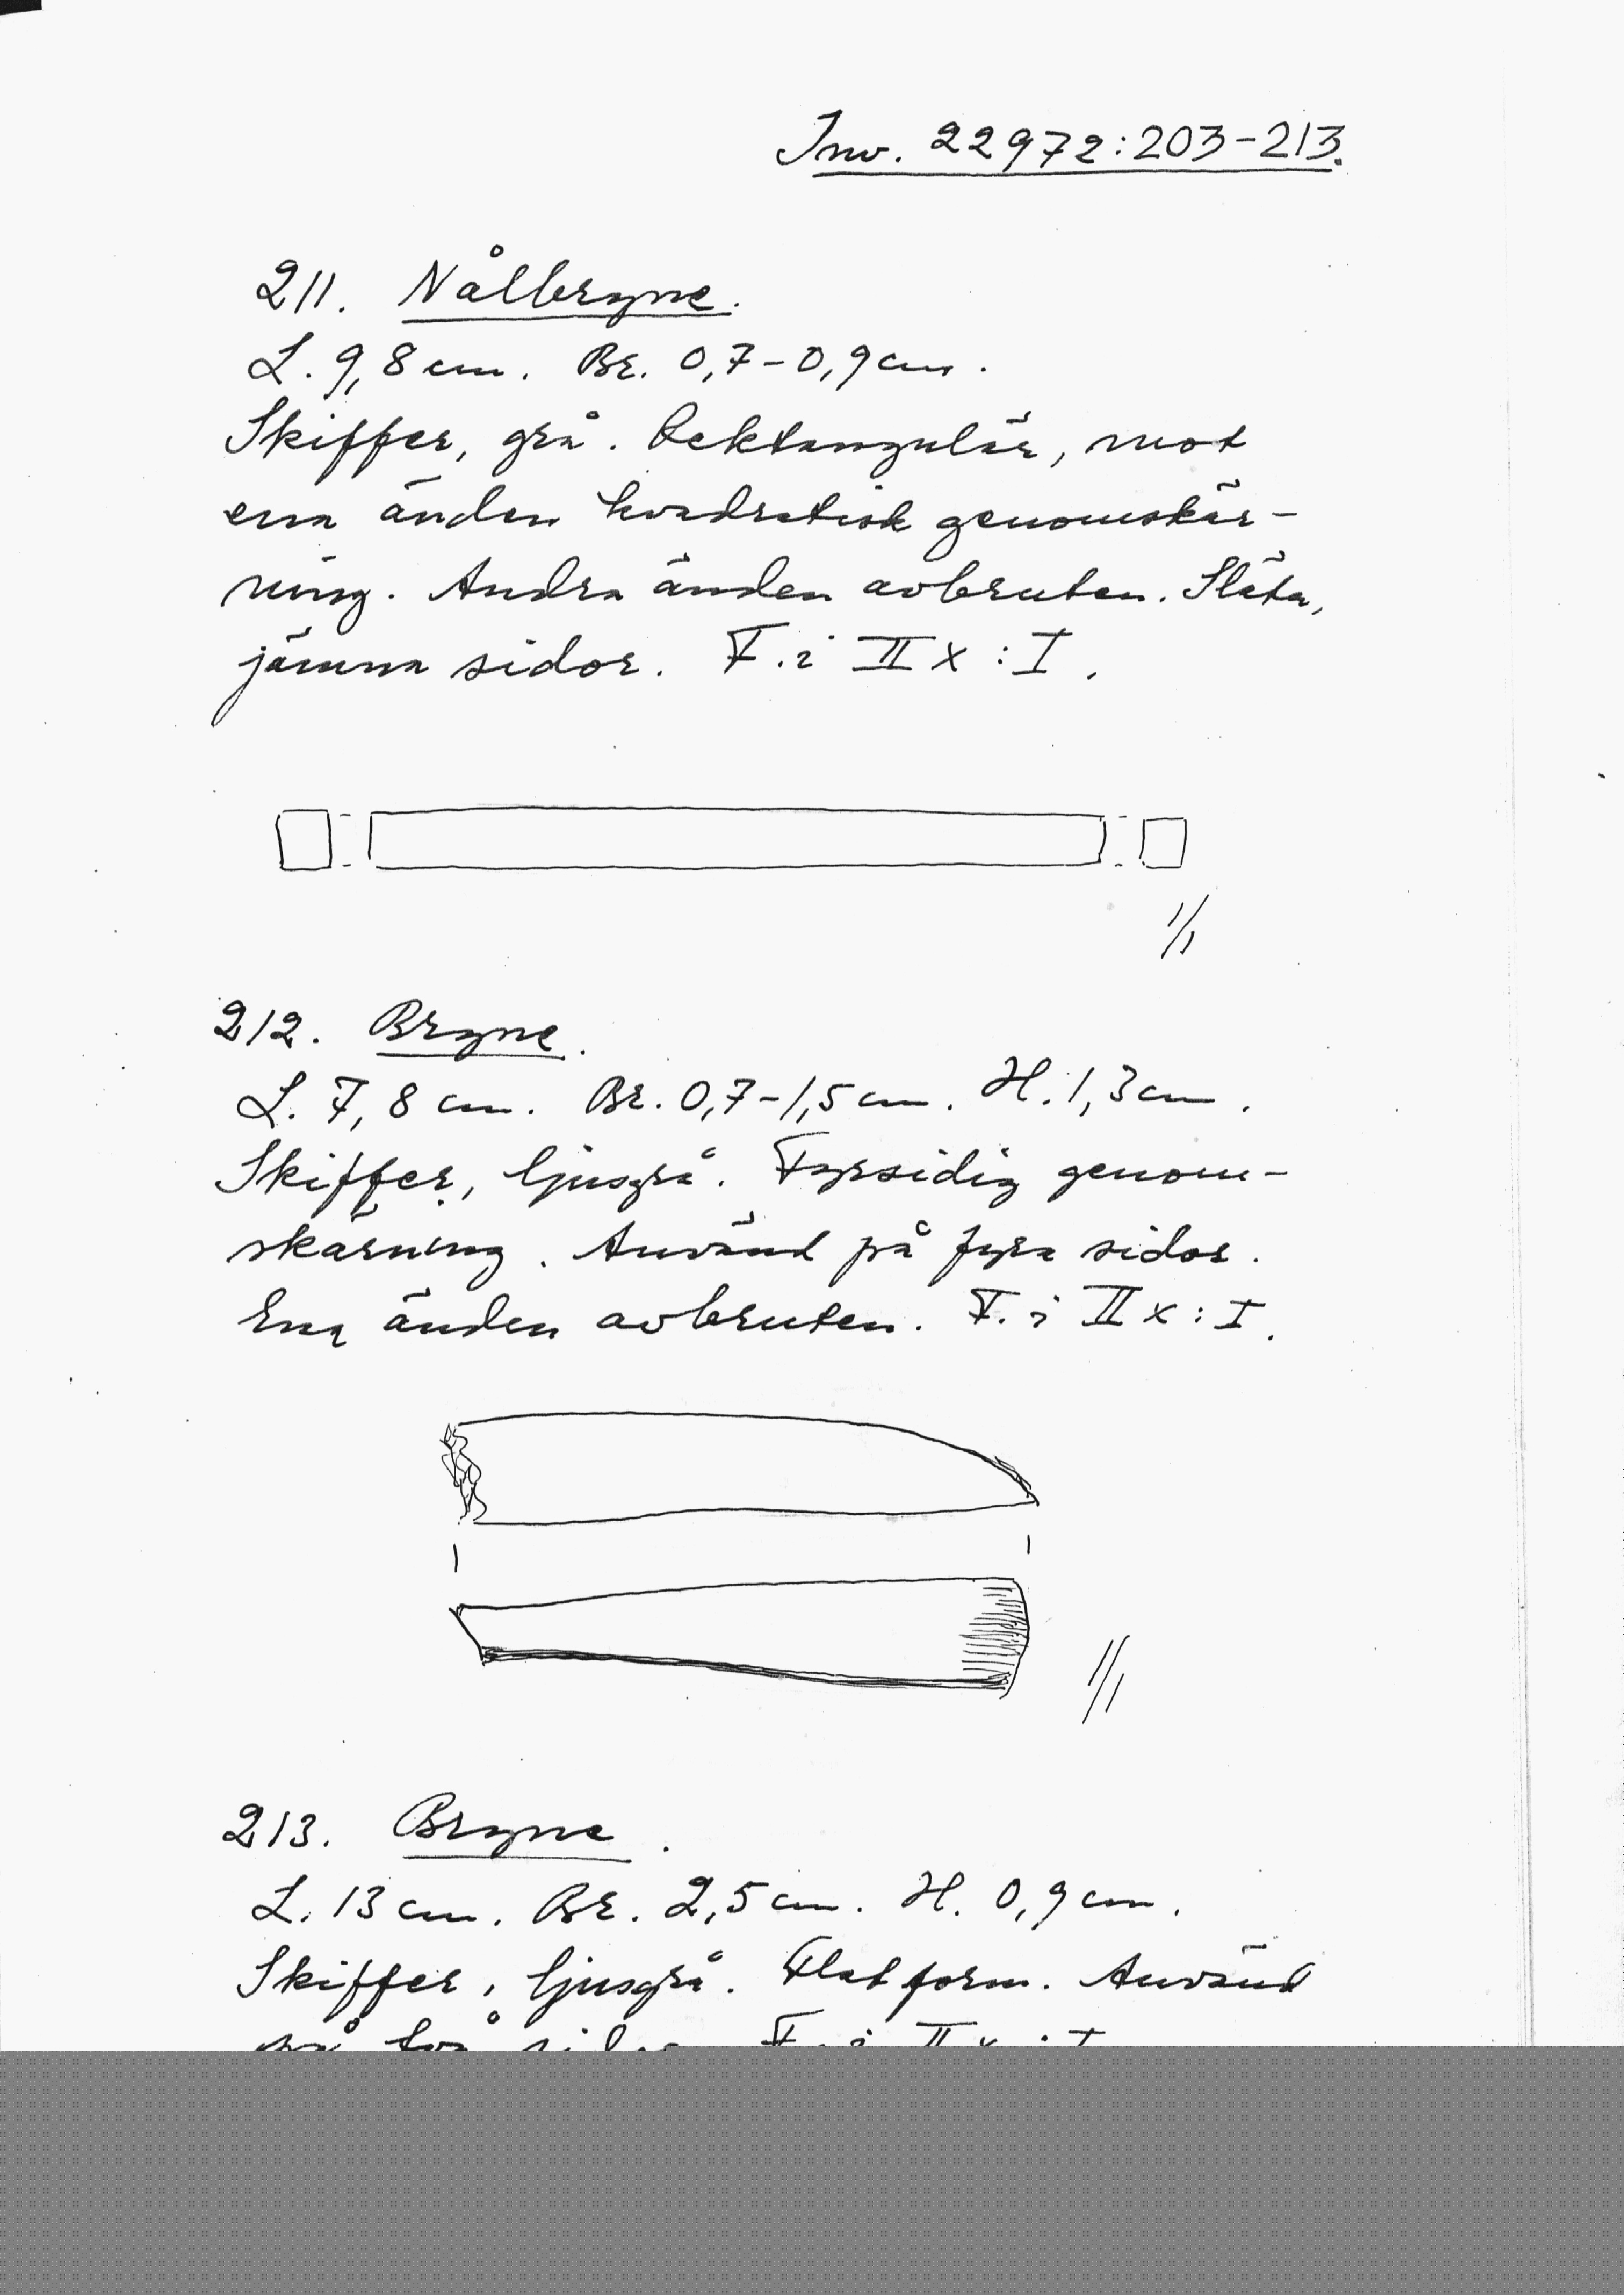 Inv. 22972:203-213.
211. Nålbryne.
L. 9,8 cm. Br. 0,7-0,9 cm.
Skiffer, grå. Rektangulär, mot
ena änden kvadratisk genomskär-
ning. Andra änden avbruten. Släta,
jämna sidor. F. i II x : I.
1/1
212. Bryne.
L. 7,8 cm. Br. 0,7-1,5 cm. H. 1,3 cm.
Skiffer, ljusgrå. Fyrsidig genom-
skärning. Använd på fyra sidor.
Ena änden avbruten. F. i II x : I.
1/1
213. Bryne.
L. 13 cm. Br. 2,5 cm. H. 0,9 cm.
Skiffer, ljusgrå. Flat form. Använd
på två sidor. F. i II x : I